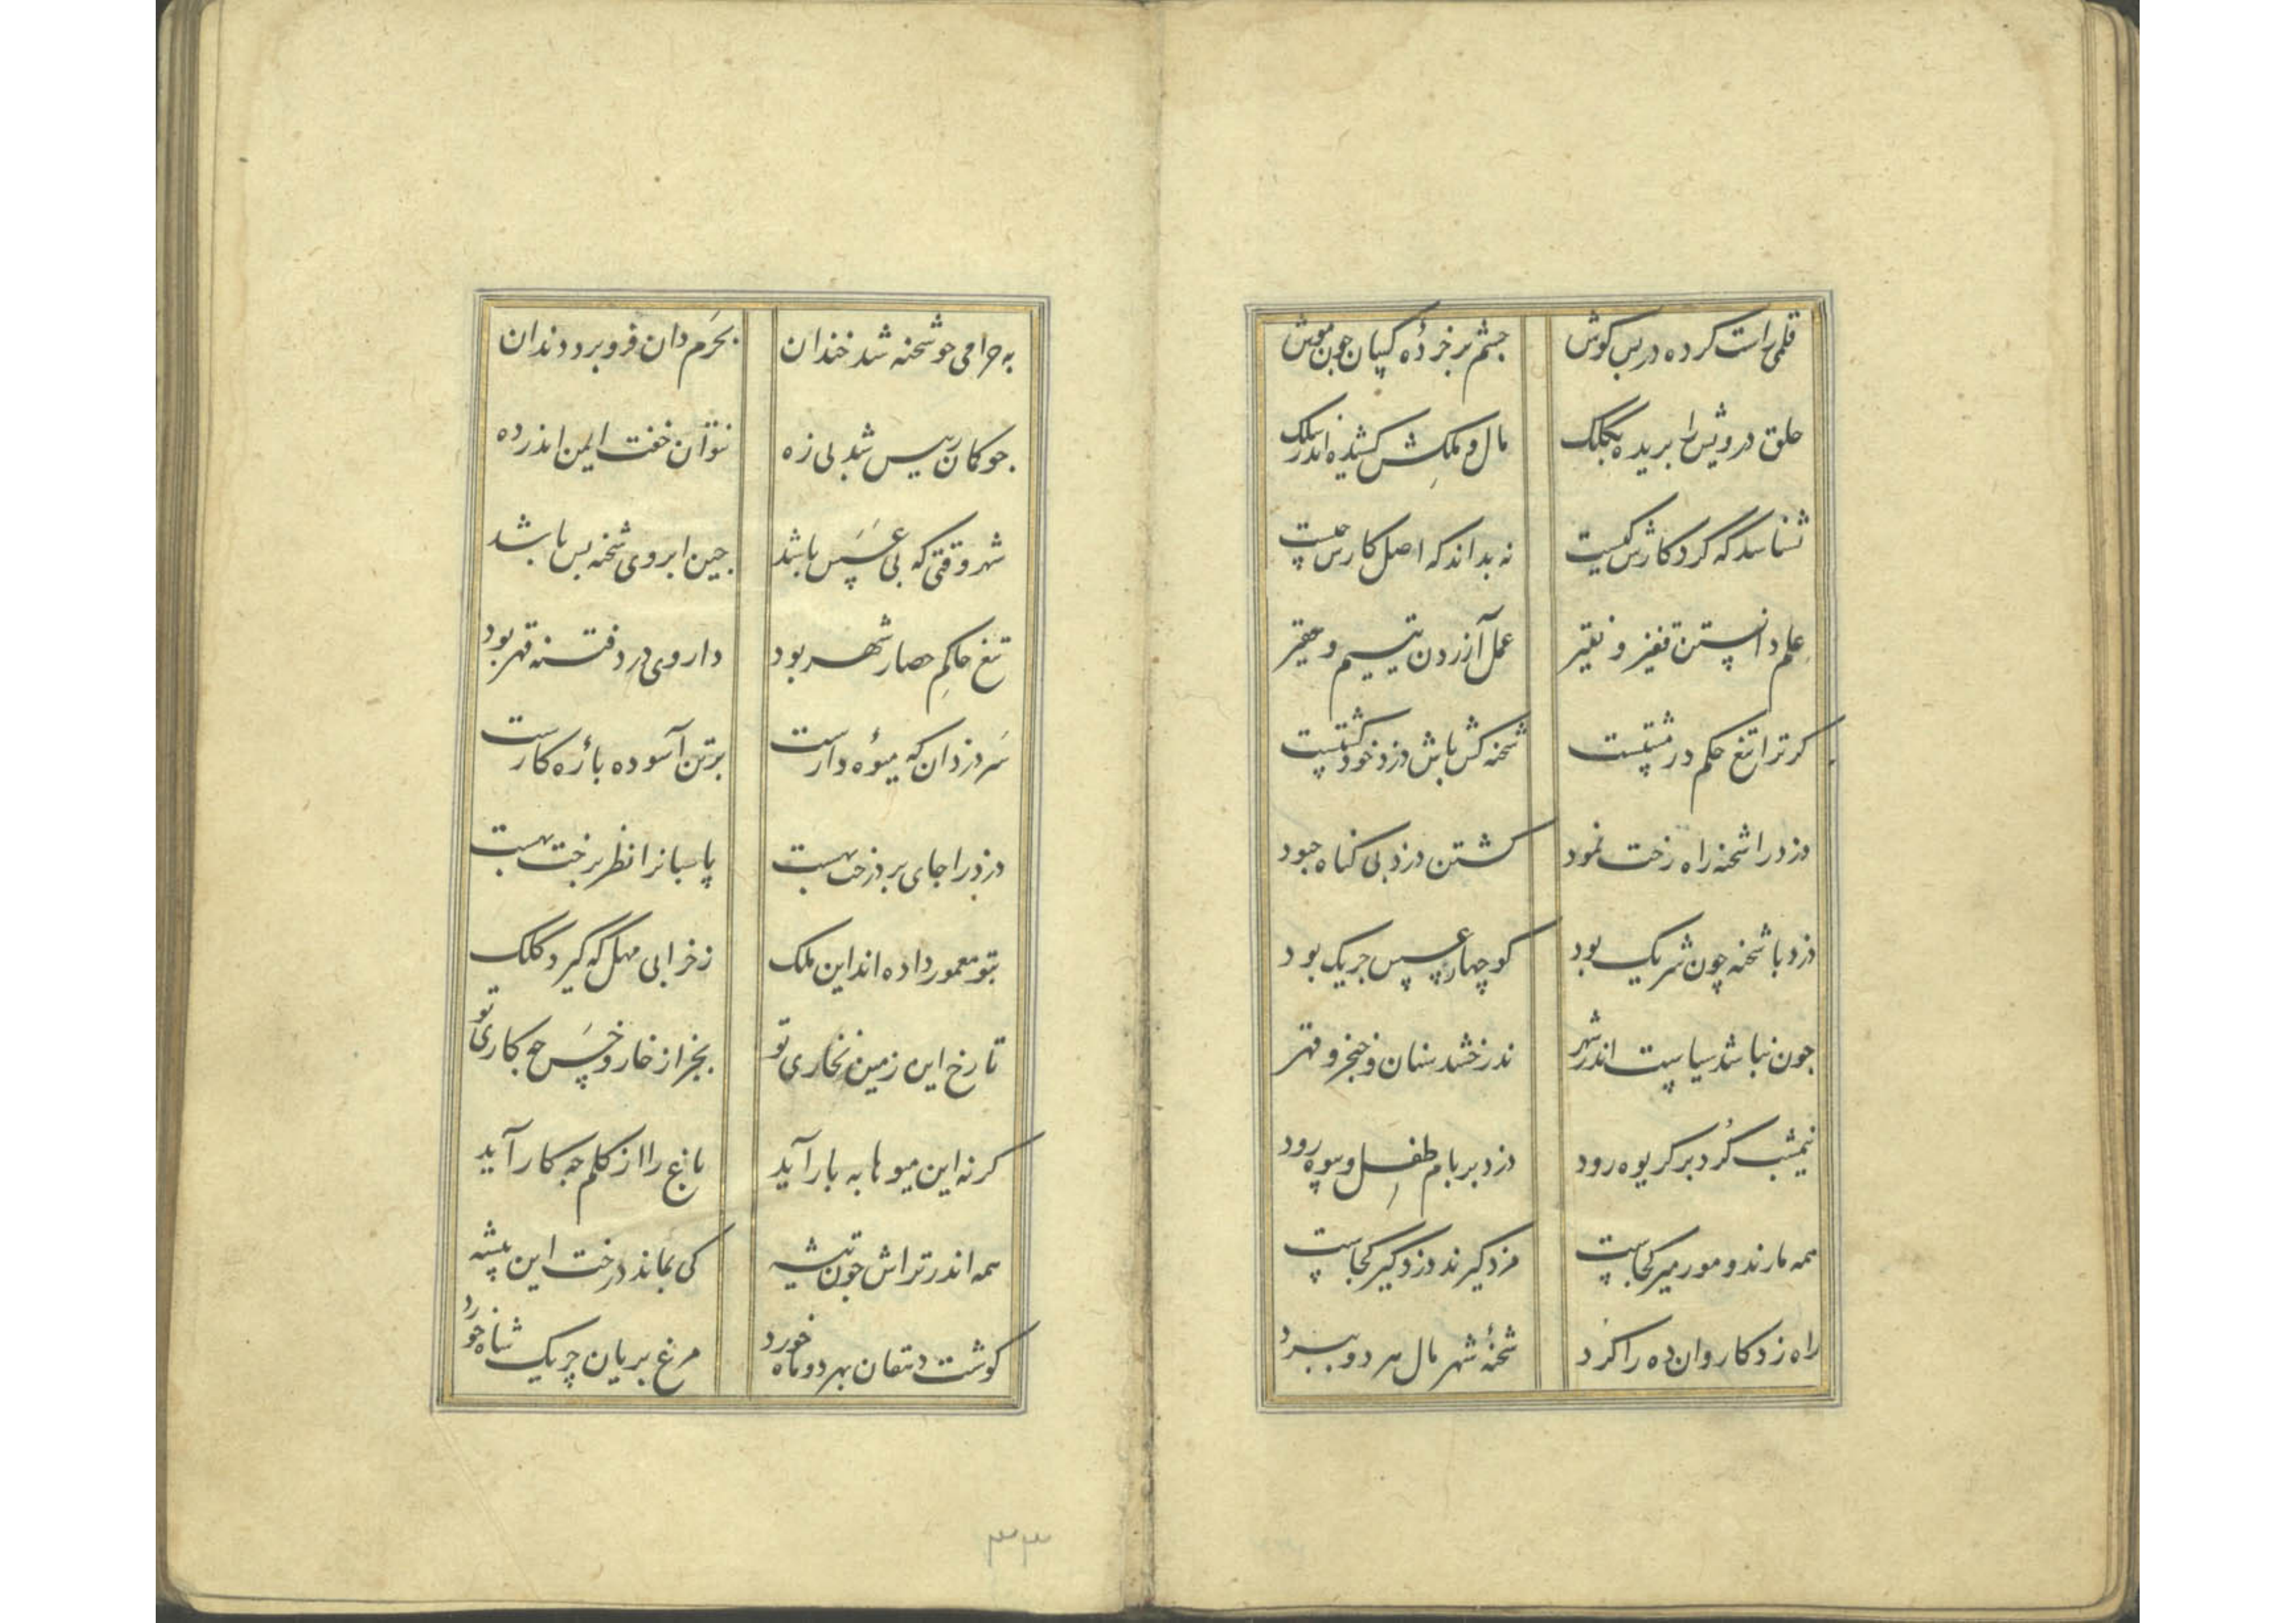 قلمی راست کرده در پس کوش چشم بر خردهٔ کسان چون موش
حلق درویش را بریده بکلک مال و ملکش کشیده اندر سلک
نشناسد که کردکارش کیست نه بداند که اصل کارش چیست
علم دانستن قفیز و نقیر عمل آزردن یتیم و حقیر
کر ترا تیغ حکم در مشتست شحنه کش باش دزد خود کشتست
دزد را شحنه راه رخت نمود کشتن دزد بی کناه چه سود
دزد با شحنه چون شریک بود کوچها را عسس چریک بود
چون نباشد سیاست اندر شهر ندرخشد سنان و خنجر و قهر
نیمشب کرد بر کریوه رود دزد بر بام طفل و بیوه رود
همه مارند و مور میر کجاست مزد کیرند دزد کیر کجاست
راه زد کاروان ده را کرد شحنهٔ شهر مال هر دو ببرد
به حرامی چو شحنه شد خندان بحرمدان فرو برد دندان
چو کمان رییس شد بی زه نتوان خفت ایمن اندر ده
شهر وقتی که بی عسس باشد چین ابروی شحنه بس باشد
تیغ حاکم حصار شهر بود داروی درد فتنه قهر بود
سر دزدان که میوهٔ دارست بر تن آسوده بارهٔ کارست
دزد را جای بر درختهست پاسبانرا نظر برختهست
بتو معمور داده اند این ملک ز خرابی مهل که کیرد کلک
تا رخ این زمین نخاری تو بجز از خار و خس چه کاری تو
کر نه این میوها به بار آید باغ را از کلم چه کار آید
همه اندر تراش چون تیشه کی بماند درخت این بیشه
کوشت دهقان بهر دو ماه خورد مرغ بریان چریک شاه خورد
۳۳